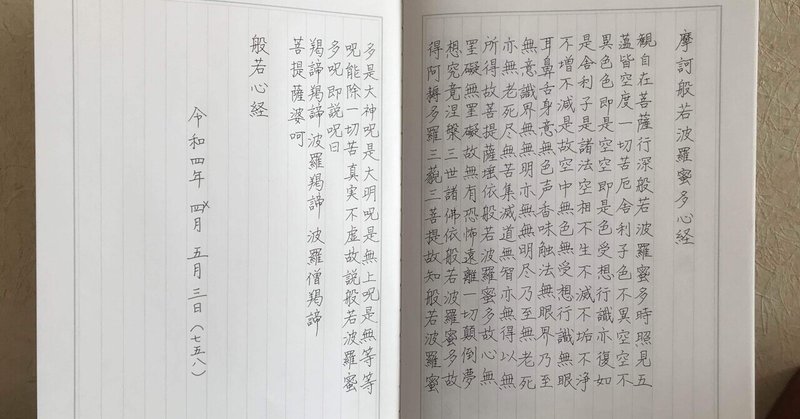 摩訶般若波羅蜜多心経
観自在菩薩行深般若波羅蜜多時照見五
蘊皆空度一切苦厄舎利子色不異空空不
異色色即是空空即是色受想行識亦復如
是舎利子是諸法空相不生不滅不垢不浄
不増不減是故空中無色無受想行識無眼
耳鼻舌身意無色声香味触法無眼界乃至
無意識界無無明亦無無明尽乃至無老死
亦無老死尽無苦集滅道無智亦無得以無
所得故菩提薩埵依般若波羅蜜多故心無
罣礙無罣礙故無有恐怖遠離一切顛倒夢
想究竟涅槃三世諸佛依般若波羅蜜多故
得阿耨多羅三藐三菩提故知般若波羅蜜
多是大神呪是大明呪是無上呪是無等等
呪能除一切苦真実不虚故説般若波羅蜜
多呪即説呪曰
羯諦羯諦 波羅羯諦 波羅僧羯諦
菩提薩婆呵
般若心経
令和四年 四月 五月三日(七五八)